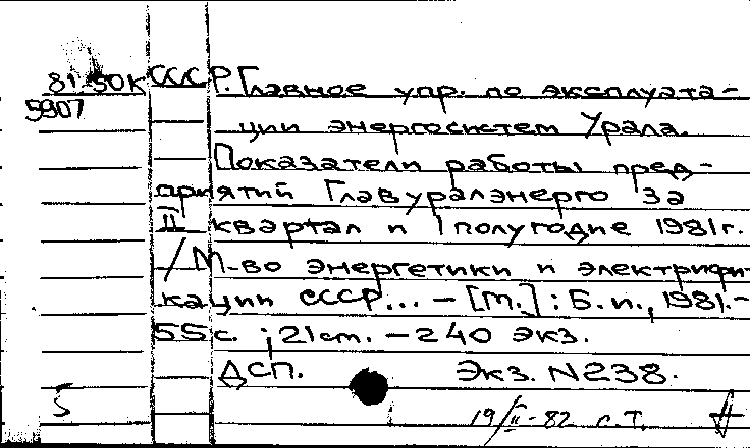 81-50К СССР. Главное упр. по эксплуата-
5907
ции энергосистем Урала.
Показатели работы пред-
приятий Главуралэнерго за
II квартал и I полугодие 1981г.
/ М-во энергетики и электрифи-
кации СССР... - [М.] : Б.и., 1981.-
55с. ; 21см. - 240 экз.
ДСП. Экз. N238.
5 19/II-82 г.Т.